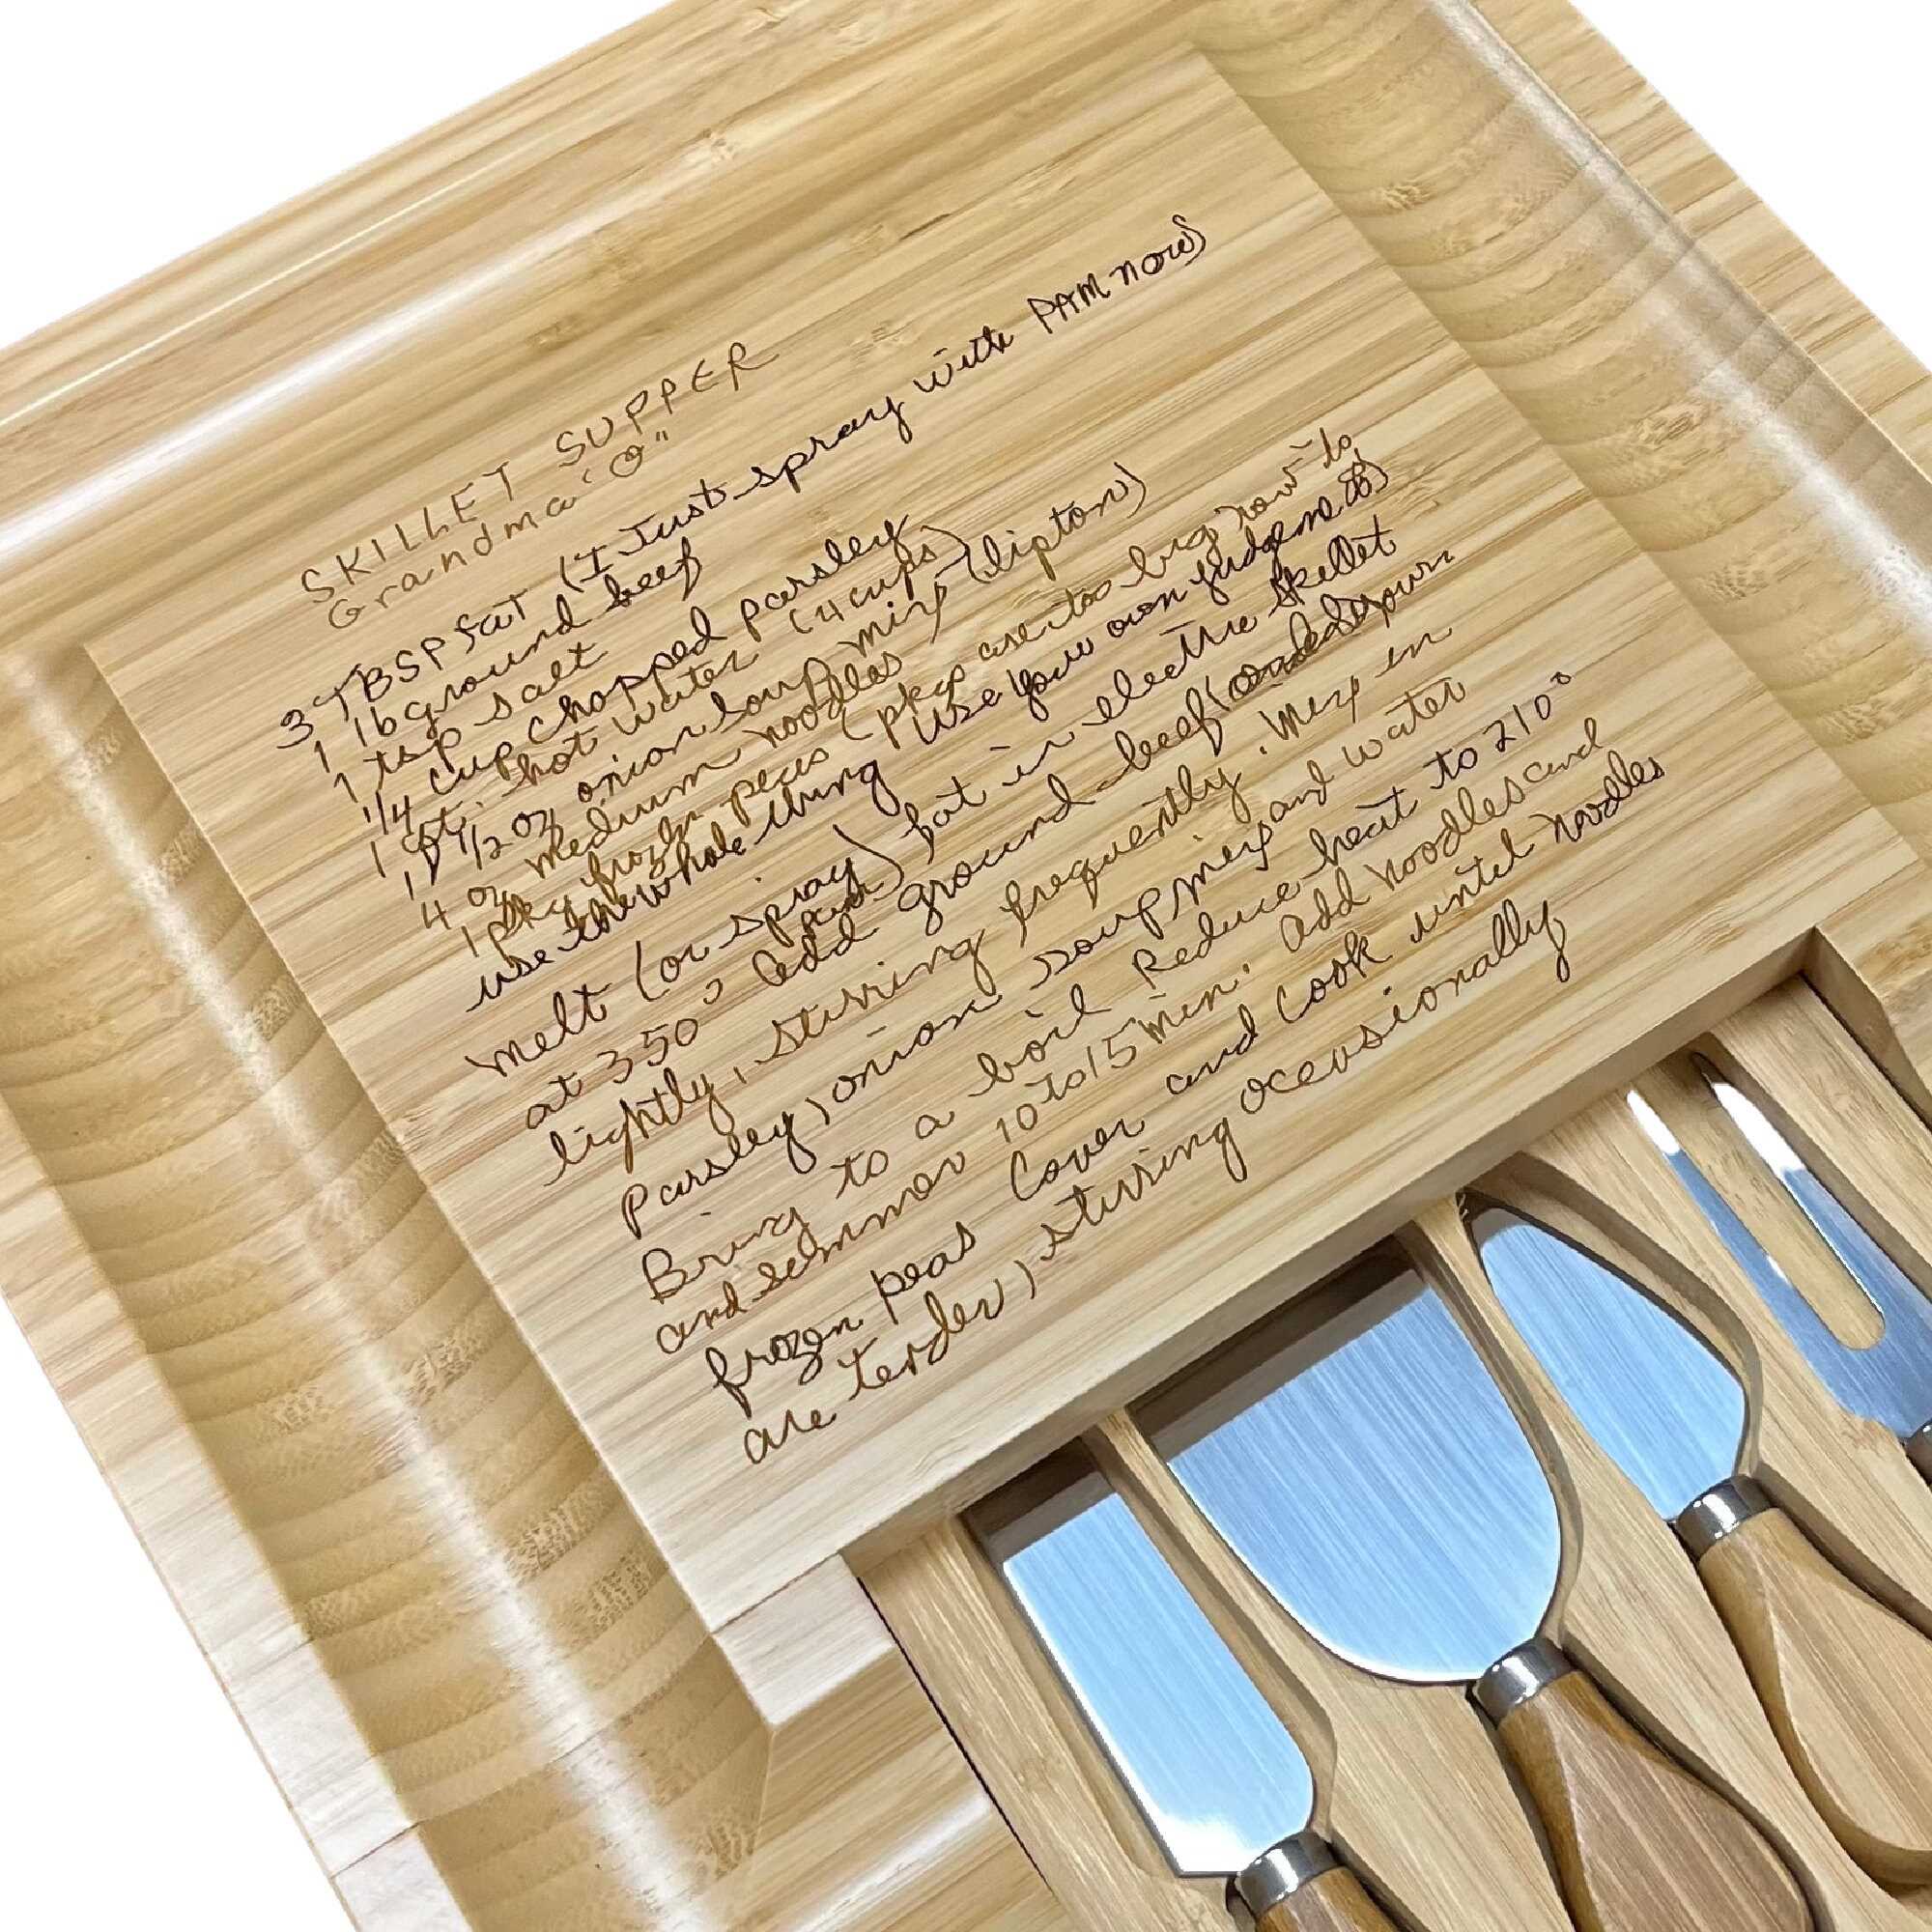 SKILLET SUPPER
Grandma "O"
3 TBSP fat (I Just spray with PAM now)
1 lb ground beef
1 tsp salt
1/4 cup chopped parsley
1 qt. hot water (4 cups)
1 1/2 oz onion soup mix (lipton)
4 oz medium noodles
1 pkg frozen peas (pkgs are too big now to
use the whole thing use your own judgement)
Melt (or spray pan) fat in electric skillet
at 350° add ground beef brown
lightly, stirring frequently. Mix in
Parsley, onion soup mix and water
Bring to a boil Reduce heat to 210°
and simmer 10 to 15 min. add noodles and
frozen peas Cover and cook until noodles
are tender, stirring occasionally